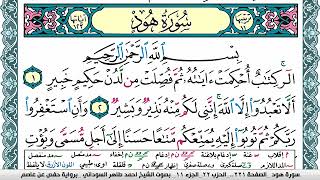 سورة هود
بسم الله الرحمن الرحيم
الٓر كِتَٰبٌ أُحۡكِمَتۡ ءَايَٰتُهُۥ ثُمَّ فُصِّلَتۡ مِن لَّدُنۡ حَكِيمٍ خَبِيرٍ ١
أَلَّا تَعۡبُدُوٓاْ إِلَّا ٱللَّهَۚ إِنَّنِي لَكُم مِّنۡهُ نَذِيرٞ وَبَشِيرٞ ٢ وَأَنِ ٱسۡتَغۡفِرُواْ
رَبَّكُمۡ ثُمَّ تُوبُوٓاْ إِلَيۡهِ يُمَتِّعۡكُم مَّتَٰعًا حَسَنًا إِلَىٰٓ أَجَلٖ مُّسَمّٗى وَيُؤۡتِ
سورة هود الصفحة ٢٢١ الجزء ١١ بصوت الشيخ أحمد طاهر السوداني برواية حفص عن عاصم